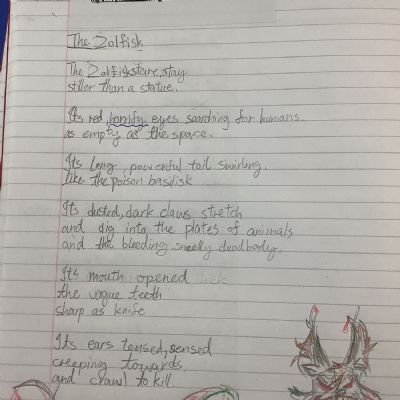 The Zolfisk
The Zolfisk stare, stay
stiller than a statue.
Its red, horrify eyes searching for humans.
as empty as the space.
Its long, powerful tail swirling,
like the poison basilisk
Its dusted, dark claws stretch
and dig into the plates of animals
and the bleeding, smelly deadbody.
Its mouth opened
the vague teeth
sharp as knife
Its ears tensed, sensed
creeping towards
and crawl to kill